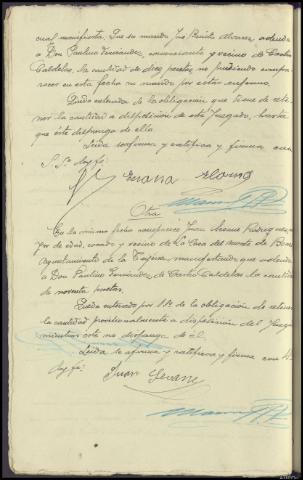 cual manifiesta: Que su marido José Benito Alvarez, adeuda
a Don Paulino Fernández, comerciante y vecino de Castro
Caldelas, la cantidad de diez pesetas no pudiendo compa-
recer en esta fecha su marido por estar enfermo.
Queda enterada de la obligación que tiene de rete-
ner la cantidad a disposición de este Juzgado, hasta
que éste disponga de ella.
Leída se afirma y ratifica y firma con
S. Sª doy fé.
Otra
En la misma fecha comparece Juan Seoane Rodriguez, ma-
yor de edad, casado y vecino de la Casa del Monte de
Ayuntamiento de La Teijeira manifestando que adeuda
a Don Paulino Fernández de Castro Caldelas la cantidad
de noventa pesetas.
Queda enterado por S.Sª de la obligación de retener
la cantidad provisionalmente a disposición del Juzgado
mientras éste no disponga de él.
Leída se afirma y ratifica y firma con S.Sª
doy fé.
Juan Seoane